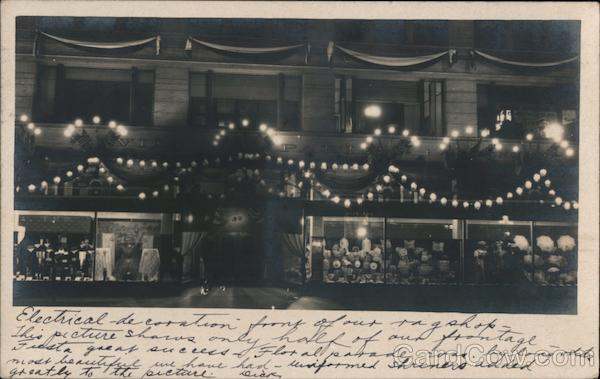 Electrical decoration front of our ragshop -
This picture shows only half of our frontage
Fiesta great success - Floral parade the
most beautiful we have had - uniformed Shriners added
greatly to the picture. Dick
CardCow.com